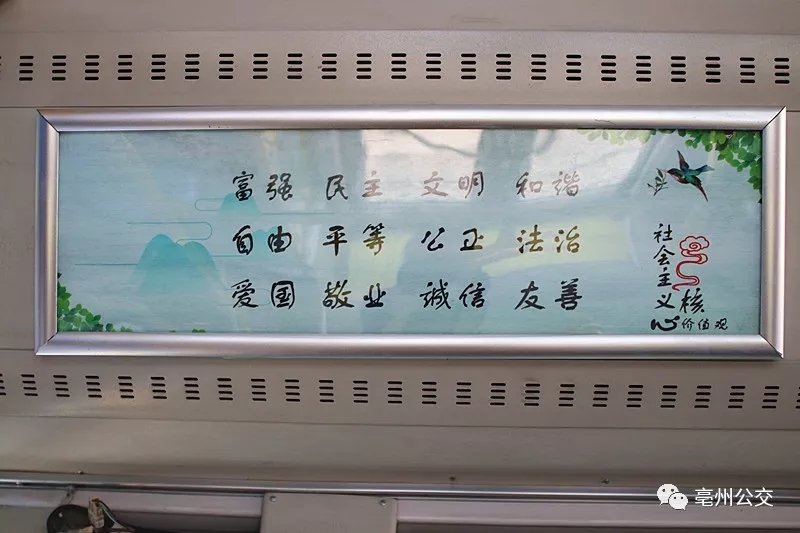 富强 民主 文明 和谐
自由 平等 公正 法治
爱国 敬业 诚信 友善
社会主义核
心价值观
亳州公交